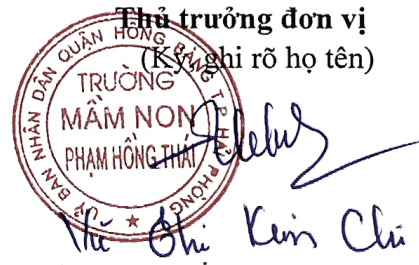 Thủ trưởng đơn vị
(Ký, ghi rõ họ tên)
ỦY BAN NHÂN DÂN QUẬN HỒNG BÀNG T.P HẢI PHÒNG
TRƯỜNG
MẦM NON
PHẠM HỒNG THÁI
Kim Chi